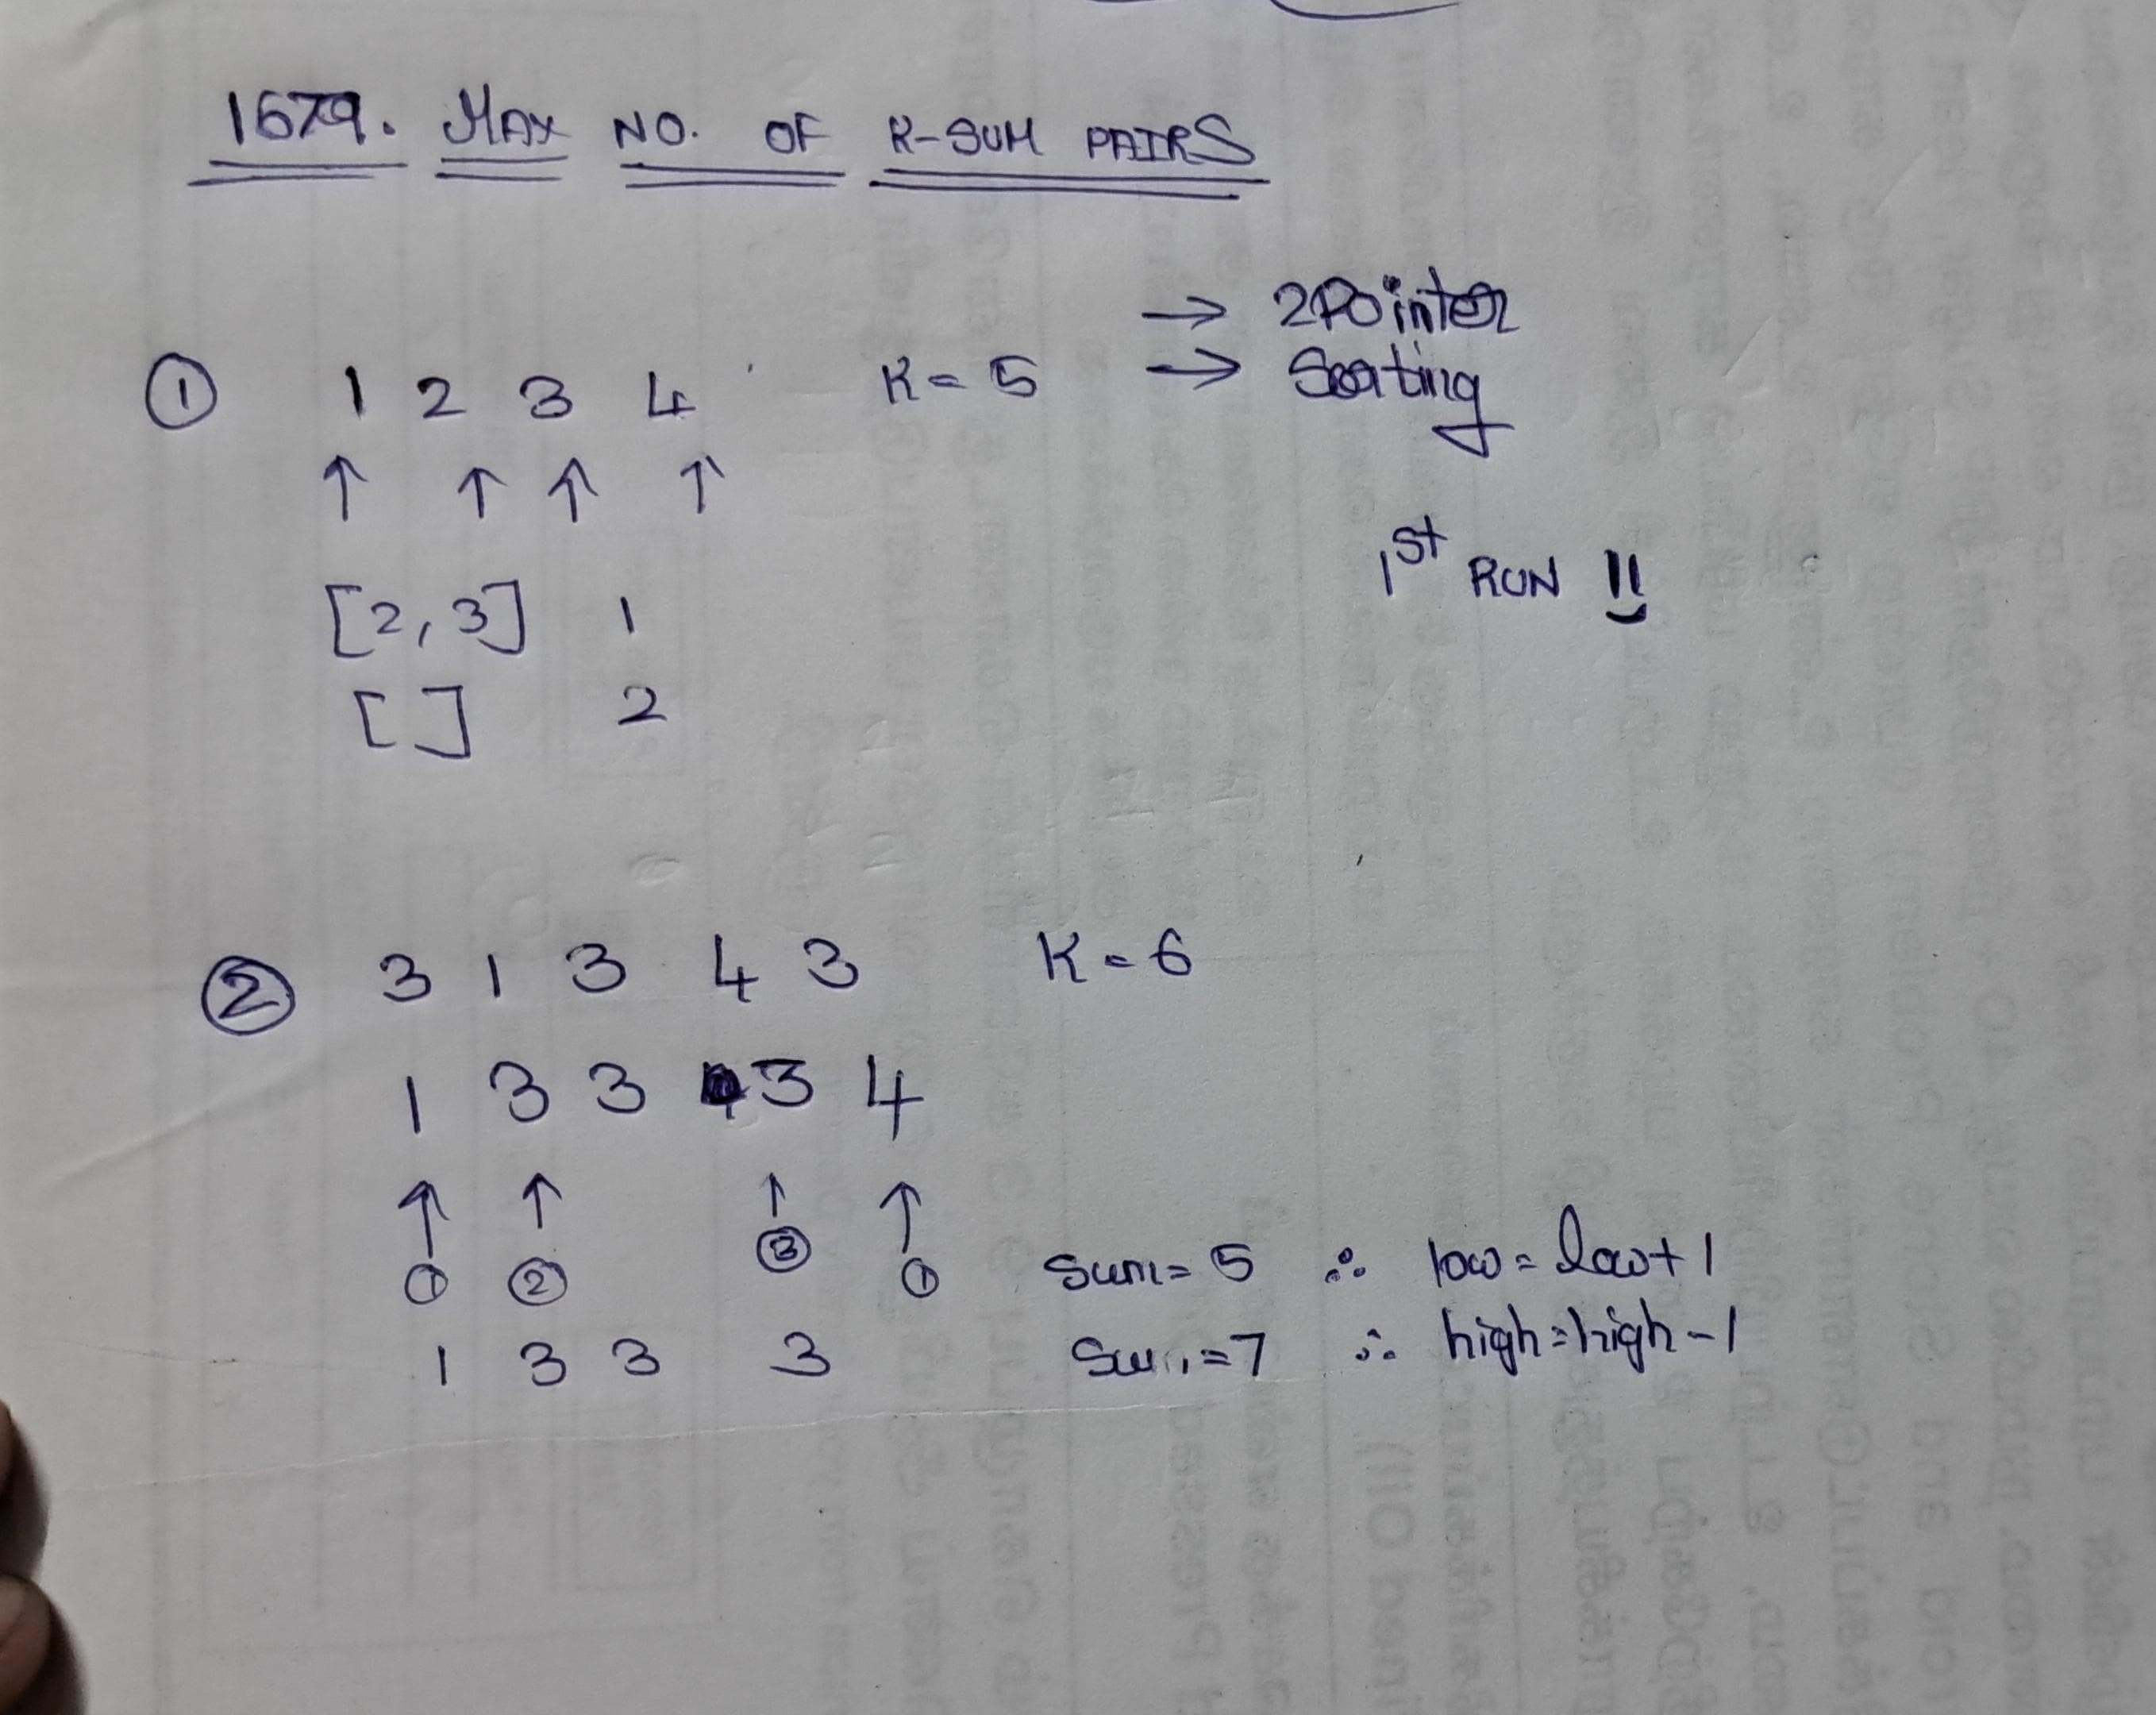 1679. MAX NO. OF K-SUM PAIRS
→ 2Pointer
① 1 2 3 4 K = 5 → Sorting
↑ ↑ ↑ ↑
[2, 3] 1
1st RUN !!
[ ] 2
② 3 1 3 4 3 K = 6
1 3 3 3 4
↑ ↑ ↑ ↑
① ② ③ ① Sum = 5 ∴ low = low + 1
1 3 3 3 Sum = 7 ∴ high = high - 1